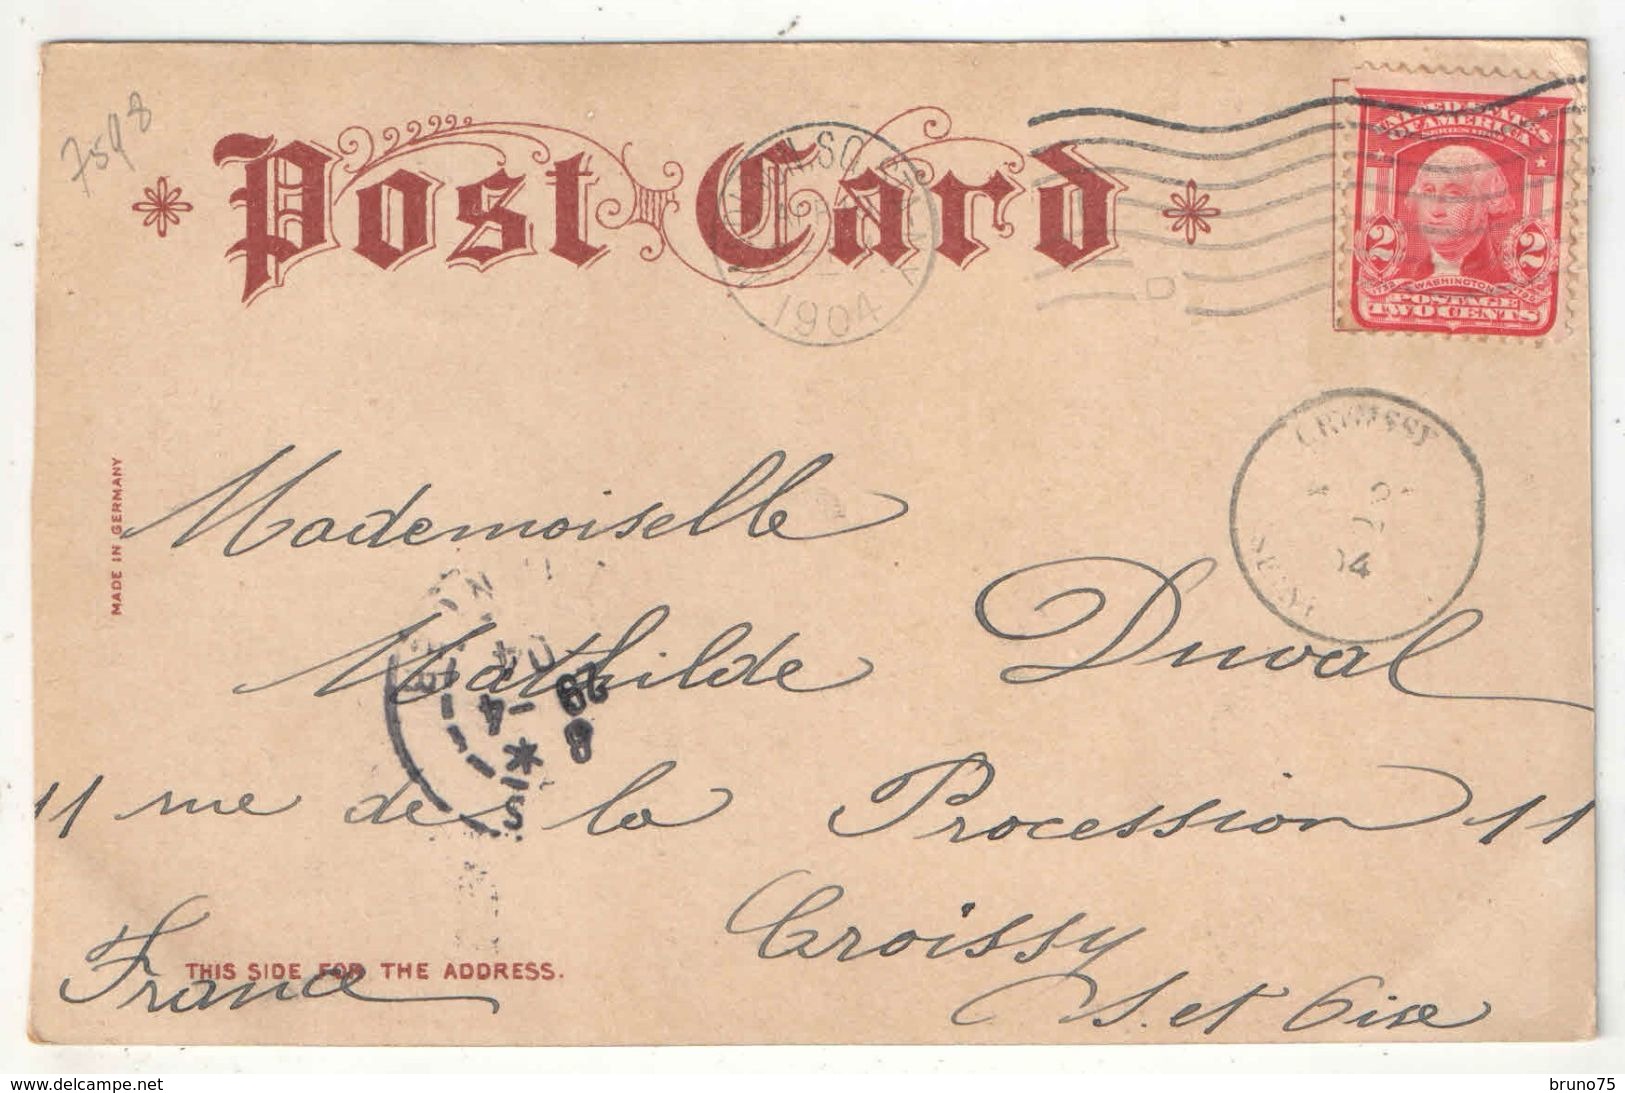 7598
Post Card
1904
UNITED STATES
OF AMERICA
2 2
WASHINGTON
POSTAGE
TWO CENTS
CROISSY
04
MADE IN GERMANY
Mademoiselle
Mathilde Duval
04
29
4
8
S
11 rue de la Procession 11
Croissy
THIS SIDE FOR THE ADDRESS.
France
S. et Oise
www.delcampe.net
bruno75